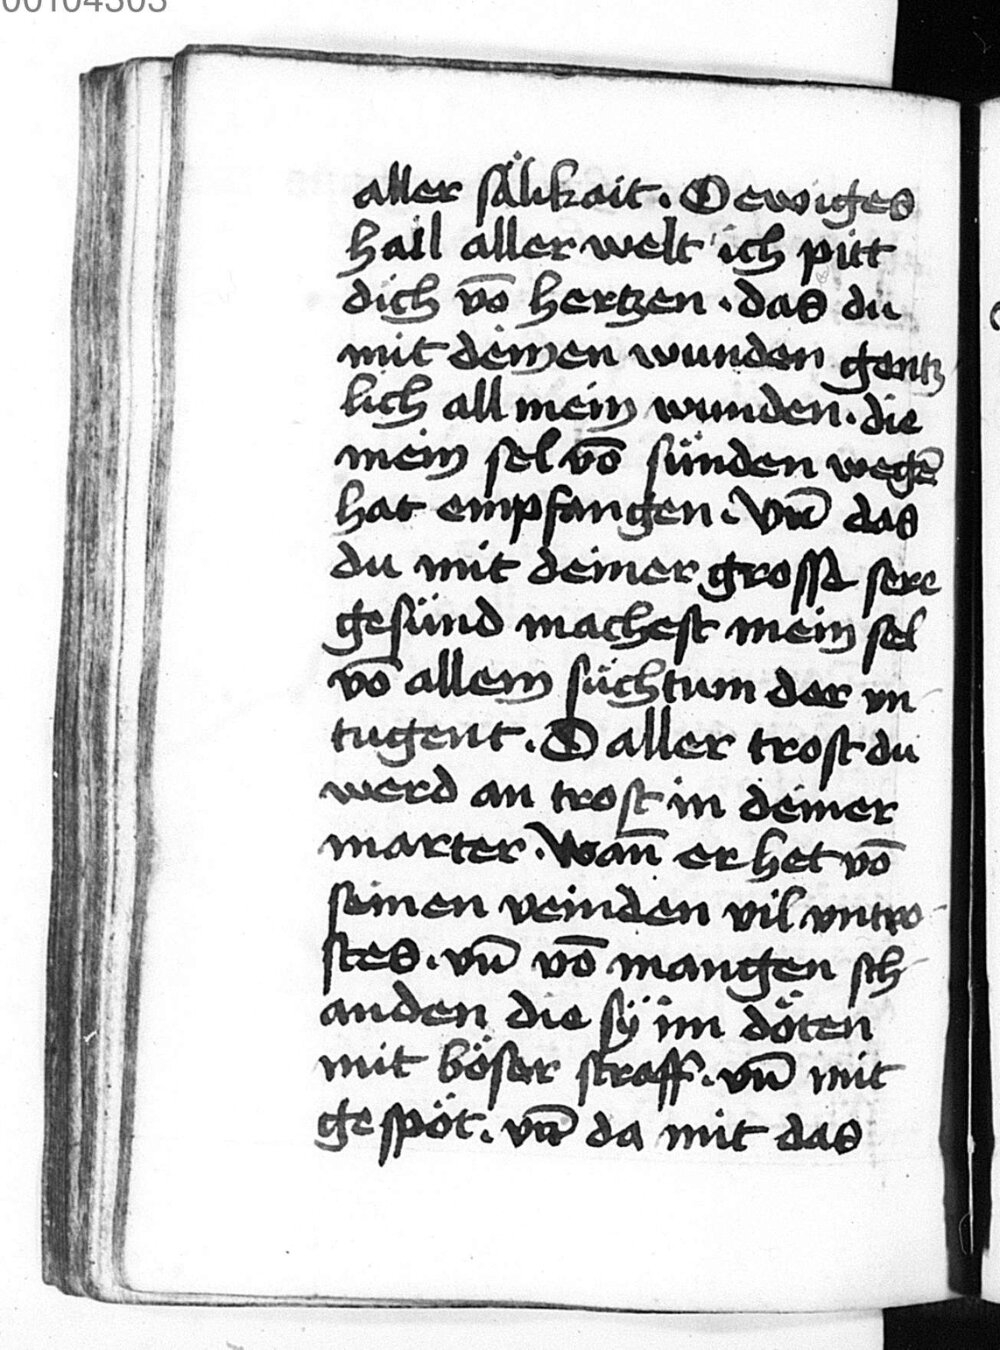 00104303
aller sälikait. O ewiges
hail aller welt ich pitt
dich vō hertzen. das du
mit deinen wunden gentz
lich all mein wunden. die
mein sel vō sünden wegē
hat empfangen. Vn̄ das
du mit deiner grosse sere
gesünd machest mein sel
vō allem süchtum der vn-
tugent. O aller trost du
werd an trost in deiner
marter. Wan̄ er het vō
seinen veinden vil vntro-
stes. vn̄ vō mangen sch-
anden die sÿ im döten
mit böser straff. vn̄ mit
gespöt. vn̄ da mit das